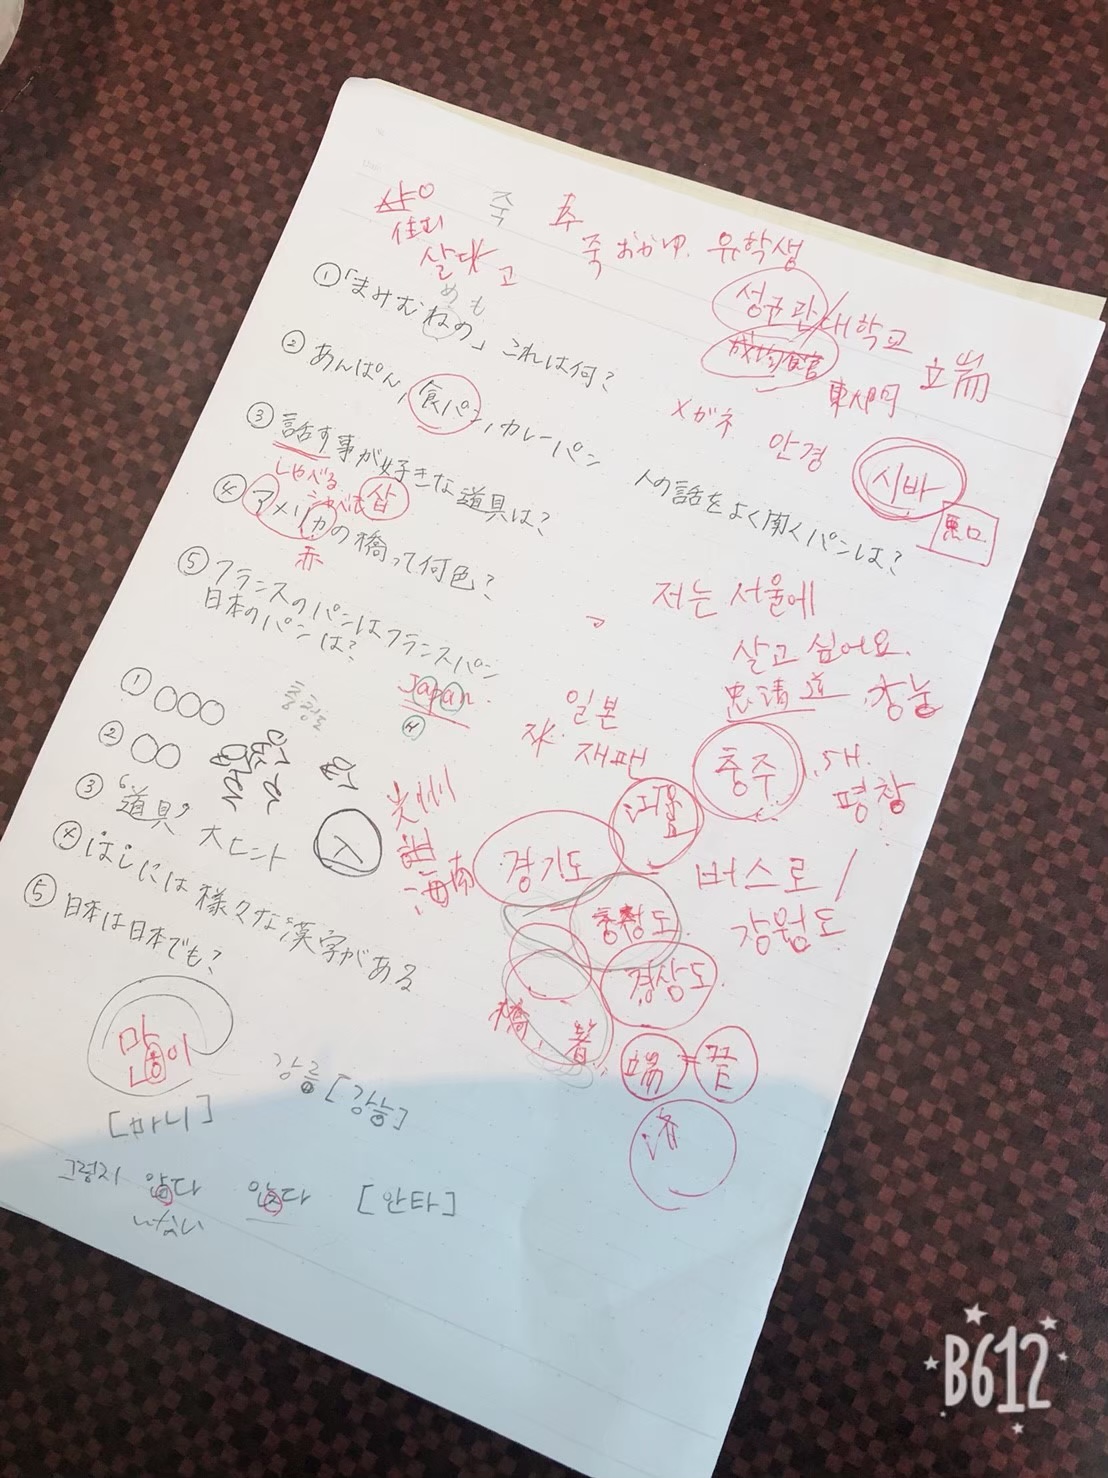 삶
죽
죽 おかゆ. 유학생
살다 고
성균관/대학교
成均館
東大門
立端
① 「まみむねの」 これは何?
めも
② あんぱん, 食パン, カレーパン 人の話をよく聞くパンは?
メガネ 안경 시바
悪口
③ 話す事が好きな道具は?
しゃべる 삽
④ アメリカの橋って何色?
赤
⑤ フランスのパンはフランスパン
日本のパンは?
저는 서울에
살고 싶어요.
忠清道
① ○○○ 충청도 Japan.
② ○○
일본
재팬
충주
평창
③ "道具" 大ヒント ス
海南
경기도
서울
버스로/
강원도
충청도.
경상도.
④ はしには様々な漢字がある
橋, 箸, 端=끝
⑤ 日本は日本でも?
많이
[마니]
강릉 [강능]
그렇지 않다 않다 [안타]
B612